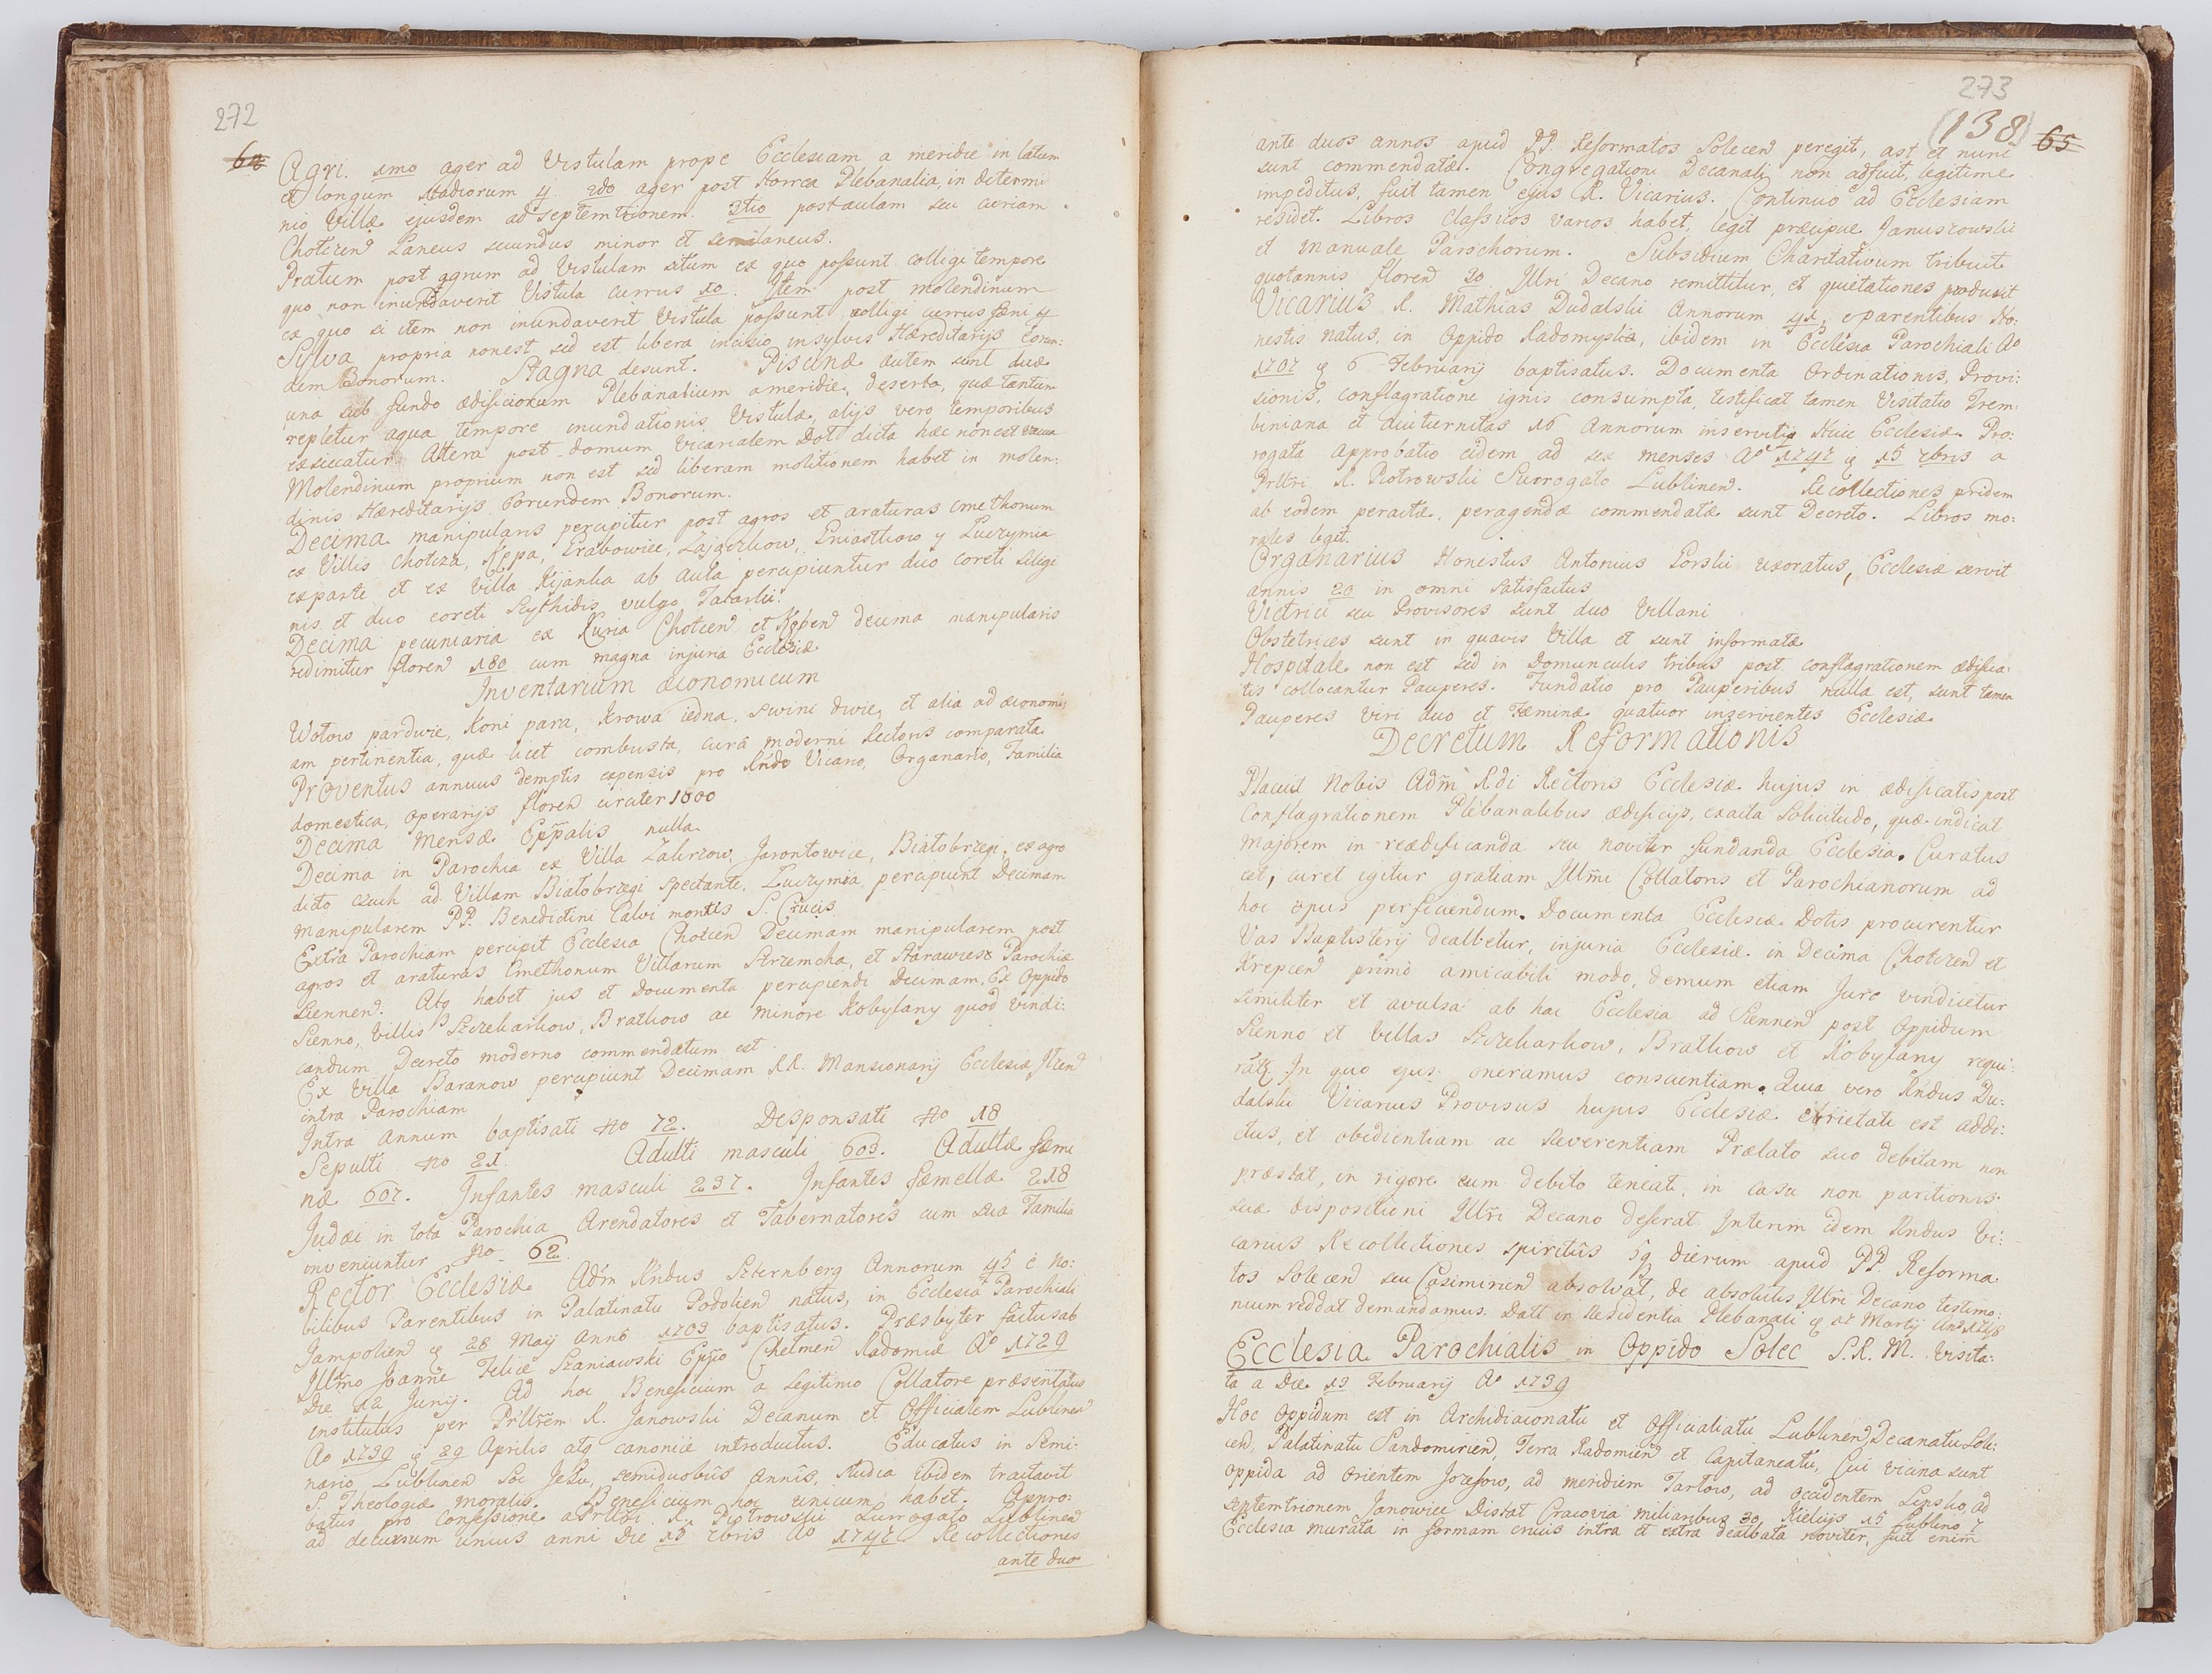 272
64
Agri. 1mo ager ad Vistulam prope Ecclesiam a meridie in latum
et longum stadiorum 4 2do ager post Horrea Plebanalia, in determi
nio Villæ ejusdem ad septemtrionem. 3tio post aulam seu curiam
Chotczen Laneus secundus minor et semilaneus.
Pratum post agrum ad Vistulam situm ex quo possunt colligi tempore
quo non inundaverit Vistula currus 10. Item post molendinum
ex quo si item non inundaverit Vistula possunt colligi currus fæni 4
Sylva propria non est sed est libera incisio in sylvis Hæreditarijs Eorun:
dem Bonorum. Stagna desunt. Piscinæ autem sunt duæ
una sub fundo ædificiorum Plebanalium a meridie, deserta, quæ tantum
repletur aqua tempore inundationis Vistulæ, alijs vero temporibus
exsiccatur. Altera post domum Vicarialem Dot dicta hæc non est vacua
Molendinum proprium non est sed liberam molitionem habet in molen:
dinis Hæreditarijs Eorundem Bonorum.
Decima manipularis percipitur post agros et araturas Cmethonum
ex Villis Chotcza, Kępa, Grabowiec, Zajączkow, Gniastkow y Luczymia
ex parte et ex Villa Kijanka ab Aula percipiuntur duo coreti siligi
nis et duo coreti Scythidis vulgo Tatarki.
Decima pecuniaria ex Kuria Chotczen et Kępen decima manipularis
redimitur floren 180 cum magna injuria Ecclesiæ
Inventarium œconomicum
Wołow par dwie, Koni para, Krowa iedna, swini dwie, et alia ad œconomi:
am pertinentia, quæ licet combusta, curâ moderni Rectoris comparata.
Proventus annuus demptis expensis pro Rndo Vicario, Organario, Familia
domestica, operarijs floren circiter 1000
Decima Mensæ Eppalis nulla
Decima in Parochia ex Villa Zakrzow, Jarontowice, Białobrzegi, ex agro
dicto czuch ad Villam Białobrzegi spectante, Luczymia percipiunt Decimam
manipularem PP. Benedictini Calvi montis S. Crucis
Extra Parochiam percipit Ecclesia Chotczen Decimam manipularem post
agros et araturas Cmethonum Villarum Strzemcha, et Starawies Parochiæ
Siennen. Atq habet jus et Documenta percipiendi Decimam, Ex Oppido
Sienno, Villis Szczekarkow, Bratkow ac minore Kobylany quod vindi:
candum Decreto moderno commendatum est
Ex Villa Baranow percipiunt Decimam RR. Mansionarij Ecclesiæ Ilzen
intra Parochiam
Intra annum baptisati No 72. Desponsati No 18
Sepulti No 21. Adulti masculi 603. Adultæ fæmi
næ 607. Infantes masculi 237. Infantes fæmellæ 218
Judæi in tota Parochia Arendatores et Tabernatores cum sua Familia
inveniuntur No 62
Rector Ecclesiæ Adm Rndus Szternberg Annorum 45 e No:
bilibus Parentibus in Palatinatu Podolien natus, in Ecclesia Parochiali
Jampolien q 28 Maij Anno 1703 baptisatus. Præsbyter factus ab
Illmo Joanne Felice Szaniawski Eppo Chelmen Radomiæ Ao 1729
Die 12 Junij. Ad hoc Beneficium a legitimo Collatore præsentatus
institutus per Prllrem R. Janowski Decanum et Officialem Lublinen
Ao 1739 q 29 Aprilis atq canonice introductus. Educatus in Semi:
nario Lublinen Soc Jesu, semiduobus annis, studia ibidem tractavit
S. Theologiæ moralis. Beneficium hoc unicum habet. Appro:
batus pro Confessione a Prllri R. Piotrowski Surrogato Lublinen
ad decursum unius anni Die 15 xbris Ao 1747 Recollectiones
ante duo
273
(138) 65
ante duos annos apud PP. Reformatos Solecen peregit, ast et nunc
sunt commendatæ. Congregationi Decanali non adfuit, legitime
impeditus, fuit tamen ejus R. Vicarius. Continuo ad Ecclesiam
residet. Libros classicos varios habet, legit præcipue Januszowski
et Manuale Parochorum. Subsidium Charitativum tribuit
quotannis floren 20 Illri Decano remittitur, et quietationes produxit
Vicarius R. Mathias Dudalski Annorum 41, e parentibus Ho:
nestis natus, in Oppido Radomyslia, ibidem in Ecclesia Parochiali Ao
1707 q 6 Februarij baptisatus. Documenta Ordinationis, Provi:
sionis, conflagratione ignis consumpta, testificat tamen Visitatio Trem:
biniana et diuturnitas 16 Annorum inservitij Huic Ecclesiæ. Pro:
rogata approbatio eidem ad sex menses Ao 1747 q 15 xbris a
Prllri R. Piotrowski Surrogato Lublinen. Recollectiones pridem
ab eodem peractæ, peragendæ commendatæ sunt Decreto. Libros mo:
rales legit.
Organarius Honestus Antonius Gorski uxoratus, Ecclesiæ servit
annis 20 in omni satisfactus
Victrici seu Provisores sunt duo Villani
Obstetrices sunt in quavis Villa et sunt informatæ
Hospitale non est sed in Domunculis tribus post conflagrationem ædifica:
tis collocantur Pauperes. Fundatio pro Pauperibus nulla est, sunt tamen
Pauperes Viri duo et Fæminæ quatuor inservientes Ecclesiæ
Decretum Reformationis
Placuit Nobis Adm Rdi Rectoris Ecclesiæ hujus in ædificatis post
Conflagrationem Plebanalibus ædificijs, exacta solicitudo, quæ indicat
majorem in reædificanda seu noviter fundanda Ecclesia. Curatus
est, curet igitur gratiam Illmi Collatoris et Parochianorum ad
hoc opus perficiendum. Documenta Ecclesiæ Dotis procurentur
Vas Baptisterij dealbetur, injuria Ecclesiæ in Decima Chotczen et
Krepcen primò amicabili modo, demum etiam Jure vindicetur
similiter et avulsa ab hac Ecclesia ad Siennen post Oppidum
Sienno et Villas Szczekarkow, Bratkow et Kobylany requi:
ratr. In quo ejus oneramus conscientiam. Quia vero Rndus Du:
dalski Vicarius Provisus hujus Ecclesiæ ebrietati est addi:
ctus, et obedientiam ac reverentiam Prælato suo debitam non
præstat, in rigore eum debito teneat, in casu non paritionis
suæ dispositioni Illri Decano deferat. Interim idem Rndus Vi:
carius Recollectiones spiritûs 5q dierum apud PP. Reforma
tos Solecen seu Casimirien absolvat, de absolutis Illri Decano testimo:
nium reddat demandamus. Datt in Residentia Plebanali q 21 Martij Ano 1748
Ecclesia Parochialis in Oppido Solec S.R.M. Visita:
ta a Die 13 Februarij Ao 1739
Hoc Oppidum est in Archidiaconatu et Officialiatu Lublinen, Decanatu Sole:
cen, Palatinatu Sandomirien, Terra Radomien et Capitaneatu, Cui vicina sunt
oppida ad orientem Jozefow, ad meridiem Tarlow, ad occidentem Lipsko, ad
septemtrionem Janowiec Distat Cracovia miliaribus 30 Kielcijs 15 Lublino 7
Ecclesia murata in formam crucis intra et extra dealbata noviter, fuit enim